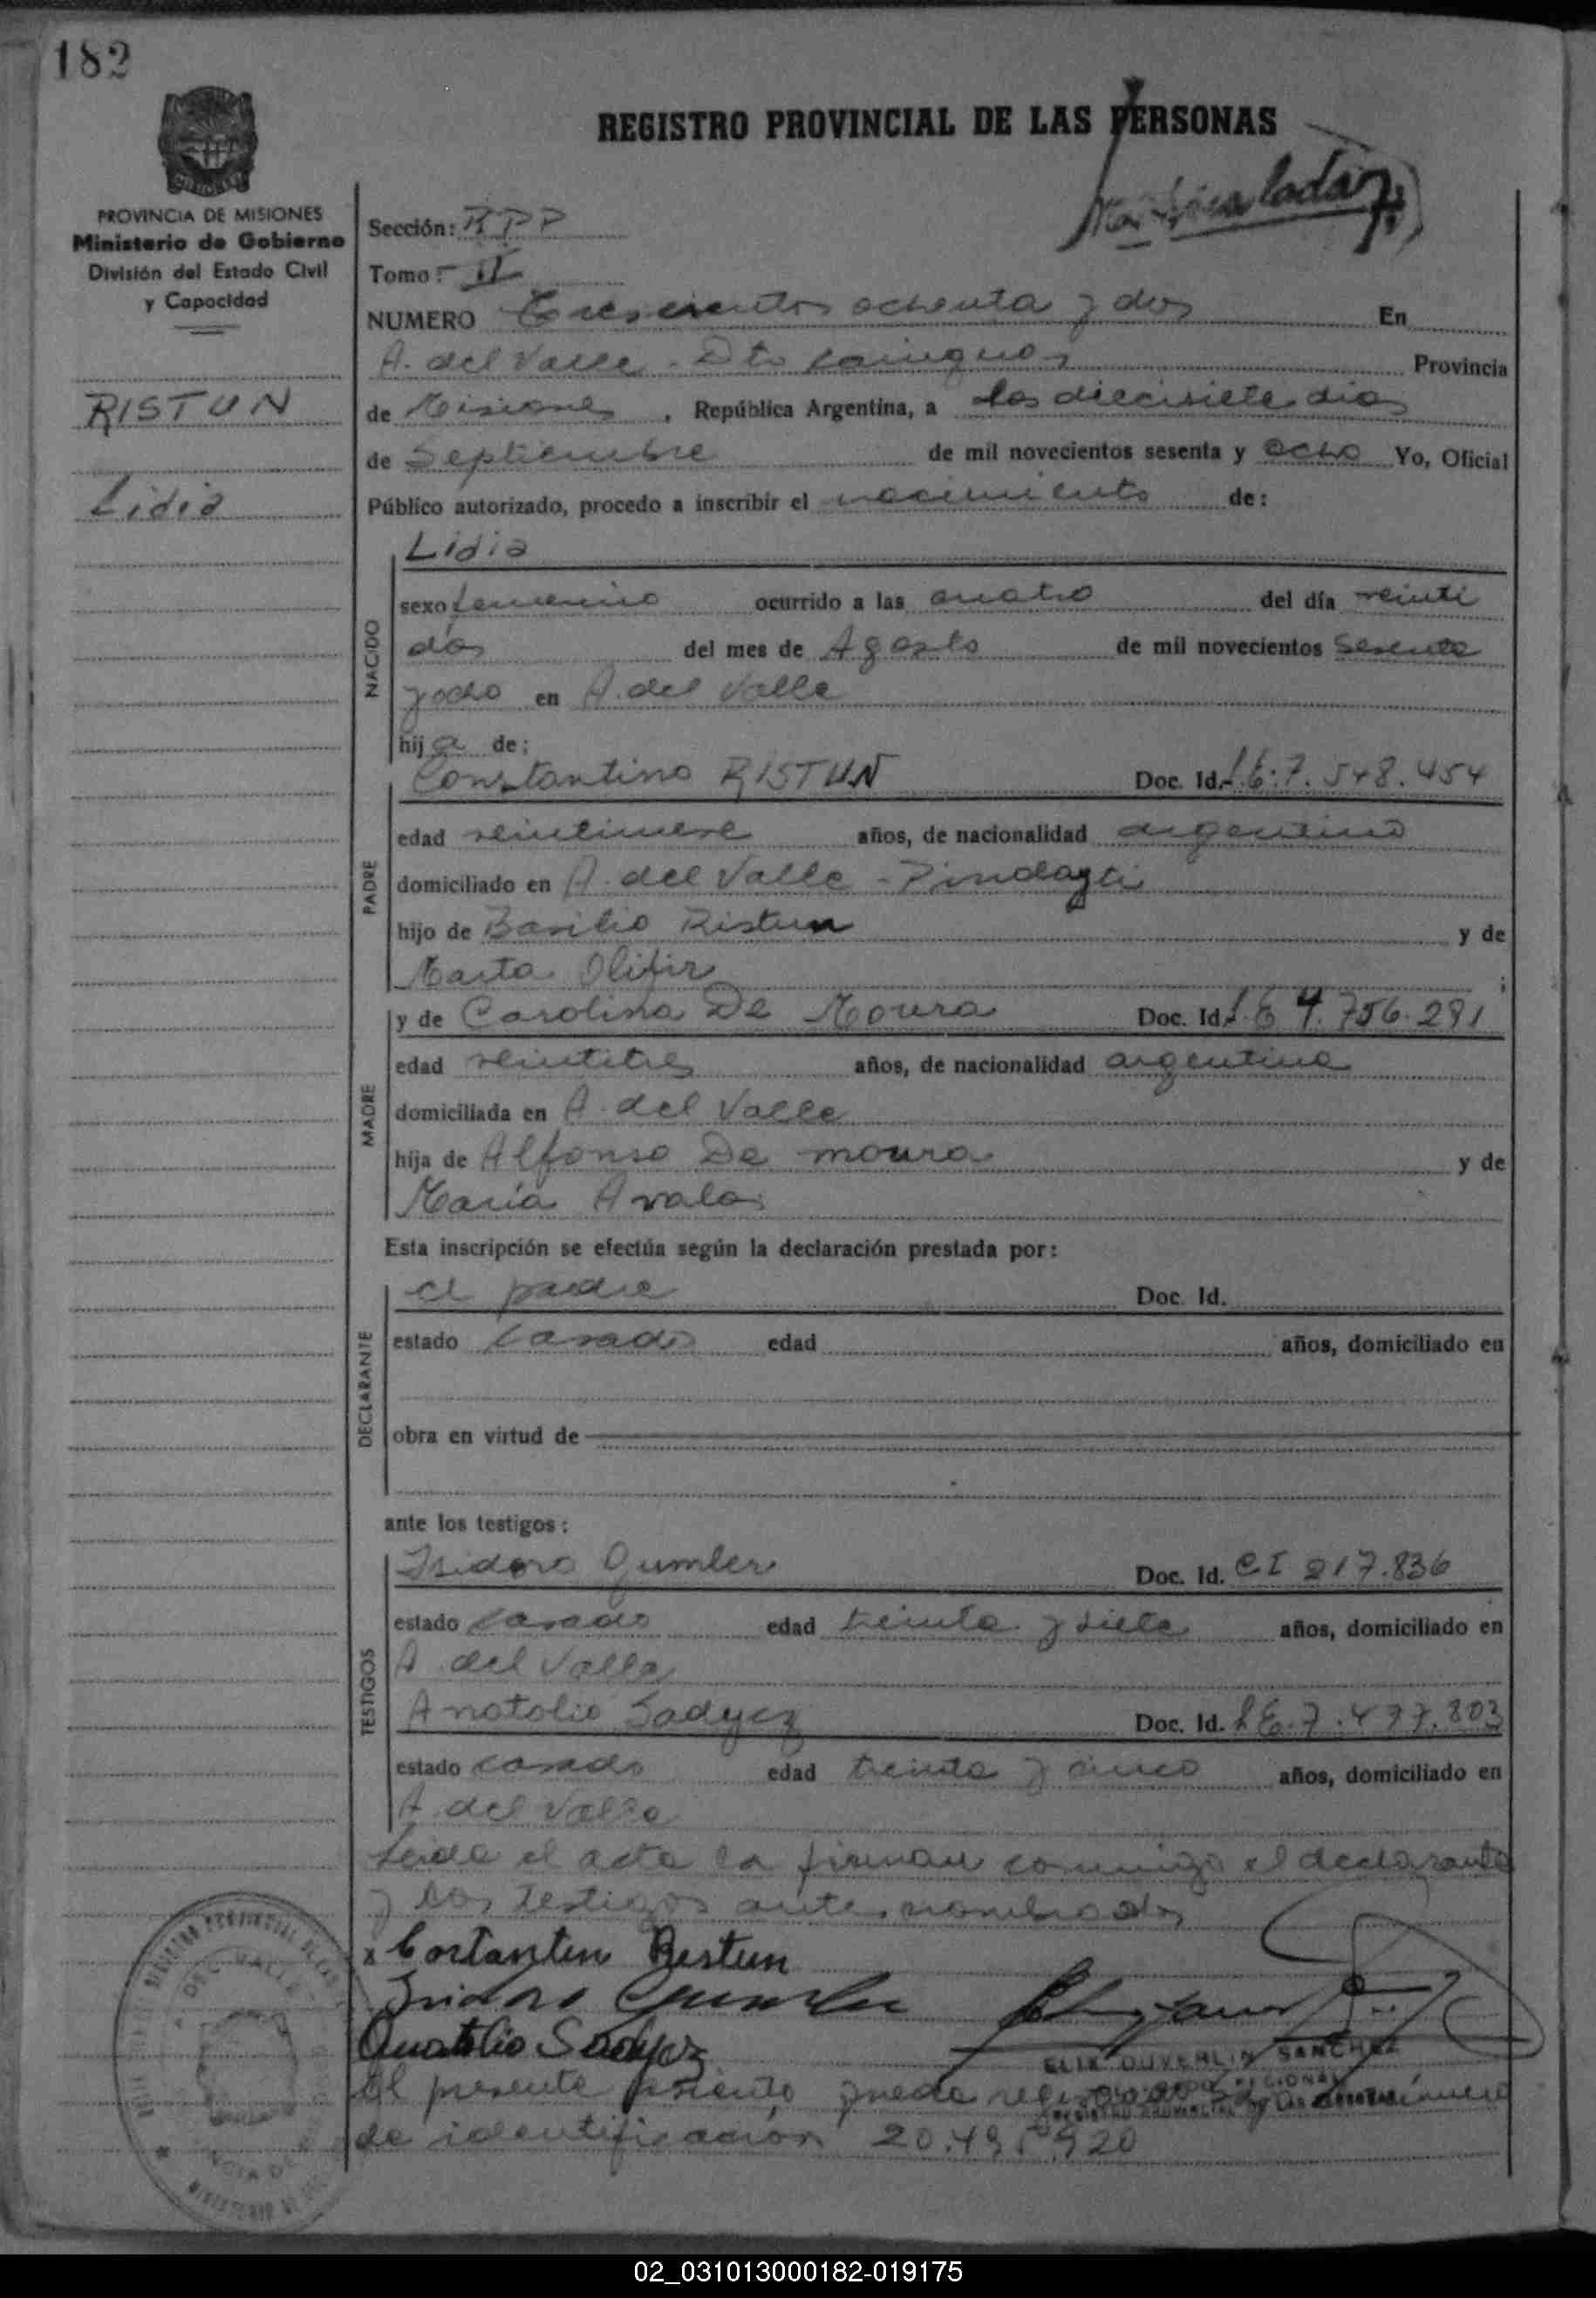 182
REGISTRO PROVINCIAL DE LAS PERSONAS
PROVINCIA DE MISIONES
Ministerio de Gobierno
División del Estado Civil
y Capacidad
RISTUN
Lidia
Sección: RPP
Tomo: II
NUMERO Trescientos ochenta y dos En
A. del Valle - Dto Cainguas Provincia
de Misiones, República Argentina, a los diecisiete dias
de Septiembre de mil novecientos sesenta y ocho Yo, Oficial
Público autorizado, procedo a inscribir el nacimiento de:
NACIDO
Lidia
sexo femenino ocurrido a las cuatro del día veinti
dos del mes de Agosto de mil novecientos sesenta
y ocho en A. del Valle
hija de:
PADRE
Constantino RISTUN Doc. Id. L.E. 7.548.454
edad veintinueve años, de nacionalidad argentino
domiciliado en A. del Valle - Pindayti
hijo de Basilio Ristun y de
Marta Olifir ;
MADRE
y de Carolina De Moura Doc. Id. L.E 4.756.281
edad veintitres años, de nacionalidad argentina
domiciliada en A. del Valle
hija de Alfonso De moura y de
María Avalos
Esta inscripción se efectúa según la declaración prestada por:
DECLARANTE
el padre Doc. Id.
estado casado edad años, domiciliado en
obra en virtud de
ante los testigos:
TESTIGOS
Isidoro Gumler Doc. Id. CI 217.836
estado casado edad treinta y siete años, domiciliado en
A. del Valle
Anatolio Sadycz Doc. Id. L.E. 7.477.803
estado casado edad treinta y cinco años, domiciliado en
A. del Valle
Leida el acta la firman conmigo el declarante
y los testigos antes nombrados
x Costantin Restun
Isidoro Gumler
Anatolio Sadycz
SANCHEZ
El presente asiento queda número
de identificación 20.495.920
02_031013000182-019175